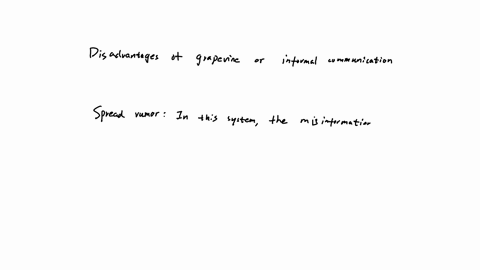 Disadvantages of grapevine or informal communication
Spread rumor: In this system, the misinformation